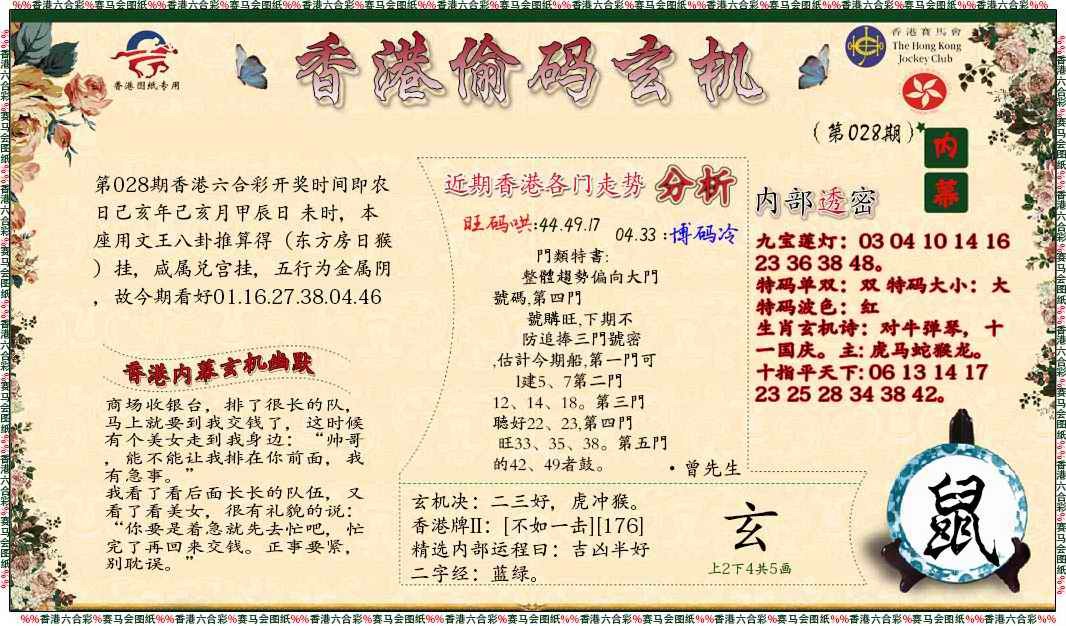 %%香港六合彩%赛马会图纸%%香港六合彩%赛马会图纸%%香港六合彩%赛马会图纸%%香港六合彩%赛马会图纸%%香港六合彩%赛马会图纸%%香港六合彩%赛马会图纸%%香港六合彩%%
香港图纸专用
香港偷码玄机
香港賽馬會
The Hong Kong
Jockey Club
(第028期)
内
幕
第028期香港六合彩开奖时间即农
日己亥年己亥月甲辰日 未时，本
座用文王八卦推算得（东方房日猴
）挂，咸属兑宫挂，五行为金属阴
，故今期看好01.16.27.38.04.46
香港内幕玄机幽默
商场收银台，排了很长的队，
马上就要到我交钱了，这时候
有个美女走到我身边：“帅哥
，能不能让我排在你前面，我
有急事。”
我看了看后面长长的队伍，又
看了看美女，很有礼貌的说：
“你要是着急就先去忙吧，忙
完了再回来交钱。正事要紧，
别耽误。”
近期香港各门走势 分析
旺码哄:44.49.17
04.33 :博码冷
門類特書:
整體趨勢偏向大門
號碼,第四門
號購旺,下期不
防追捧三門號密
,估計今期船,第一門可
1建5、7第二門
12、14、18。第三門
聽好22、23,第四門
旺33、35、38。第五門
的42、49者鼓。
·曾先生
内部透密
九宝莲灯：03 04 10 14 16
23 36 38 48。
特码单双：双 特码大小：大
特码波色：红
生肖玄机诗：对牛弹琴，十
一国庆。主: 虎马蛇猴龙。
十指平天下: 06 13 14 17
23 25 28 34 38 42。
玄机决：二三好，虎冲猴。
香港牌II：[不如一击][176]
精选内部运程日：吉凶半好
二字经：蓝绿。
玄
上2下4共5画
鼠
%%香港六合彩%赛马会图纸%%香港六合彩%赛马会图纸%%香港六合彩%赛马会图纸%%香港六合彩%赛马会图纸%%香港六合彩%赛马会图纸%%香港六合彩%赛马会图纸%%香港六合彩%%